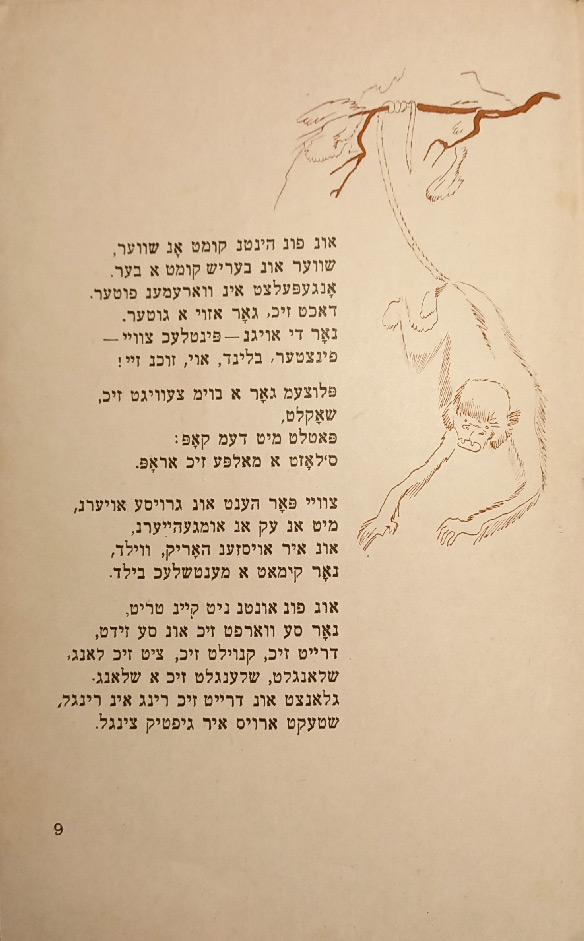 און פונ הינטנ קומט אָנ שווער,
שווער און בעריש קומט א בער.
אָנגעפּעלצט אינ ווארעמענ פוטער.
דאכט זיכ, גאָר אזוי א גוטער.
נאָר די אויגנ — פּינטלעכ צוויי —
פינצטער, בלינד, אוי, זוכנ זיי!
פּלוצעמ גאָר א בוימ צעוויגט זיכ,
שאָקלט,
פּאטלט מיט דעמ קאָפּ:
ס׳לאָזט א מאלפּע זיכ אראָפּ.
צוויי פּאָר הענט אונ גרויסע אויערנ,
מיט אנ עק אנ אומגעהייערנ,
אונ איר אויסזענ האָריק, ווילד,
נאָר קימאט א מענטשלעכ בילד.
אונ פונ אונטנ ניט קיינ טריט,
נאָר סע ווארפט זיכ אונ סע זידט,
דרייט זיכ, קנוילט זיכ, ציט זיכ לאנג,
שלאנגלט, שלענגלט זיכ א שלאנג.
גלאנצט אונ דרייט זיכ רינג אינ רינגל,
שטעקט ארויס איר גיפטיק צינגל.
9